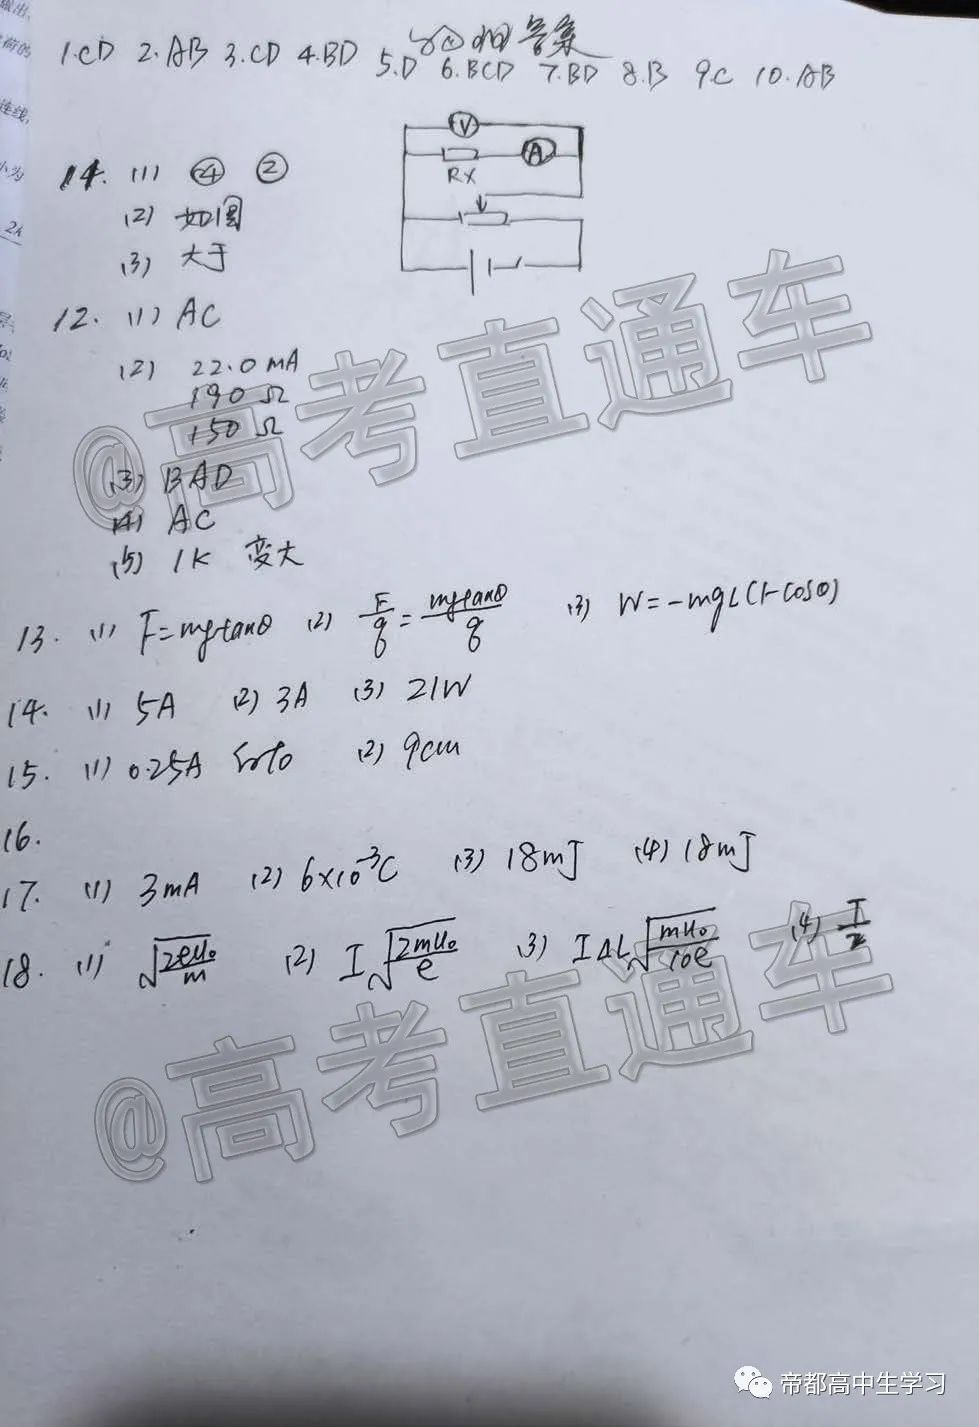 答案
1.CD 2.AB 3.CD 4.BD 5.D 6.BCD 7.BD 8.B 9.C 10.AB
V
A
RX
14. (1) ④ ②
(2) 如图
(3) 大于
12. (1) AC
(2) 22.0mA
190Ω
150Ω
(3) BAD
(4) AC
(5) 1K 变大
13. (1) F=mgtanθ (2) F/q=mgtanθ/q (3) W=-mgL(1-cosθ)
14. (1) 5A (2) 3A (3) 21W
15. (1) 0.25A (2) 9cm
16.
17. (1) 3mA (2) 6×10⁻³C (3) 18mJ (4) 18mJ
18. (1) √(2eU₀/m) (2) I√(2mU₀/e) (3) IΔL√(mU₀/10e) (4) I/2
@高考直通车
@高考直通车
帝都高中生学习